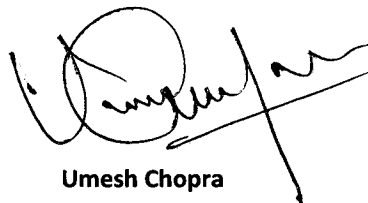 Umesh Chopra